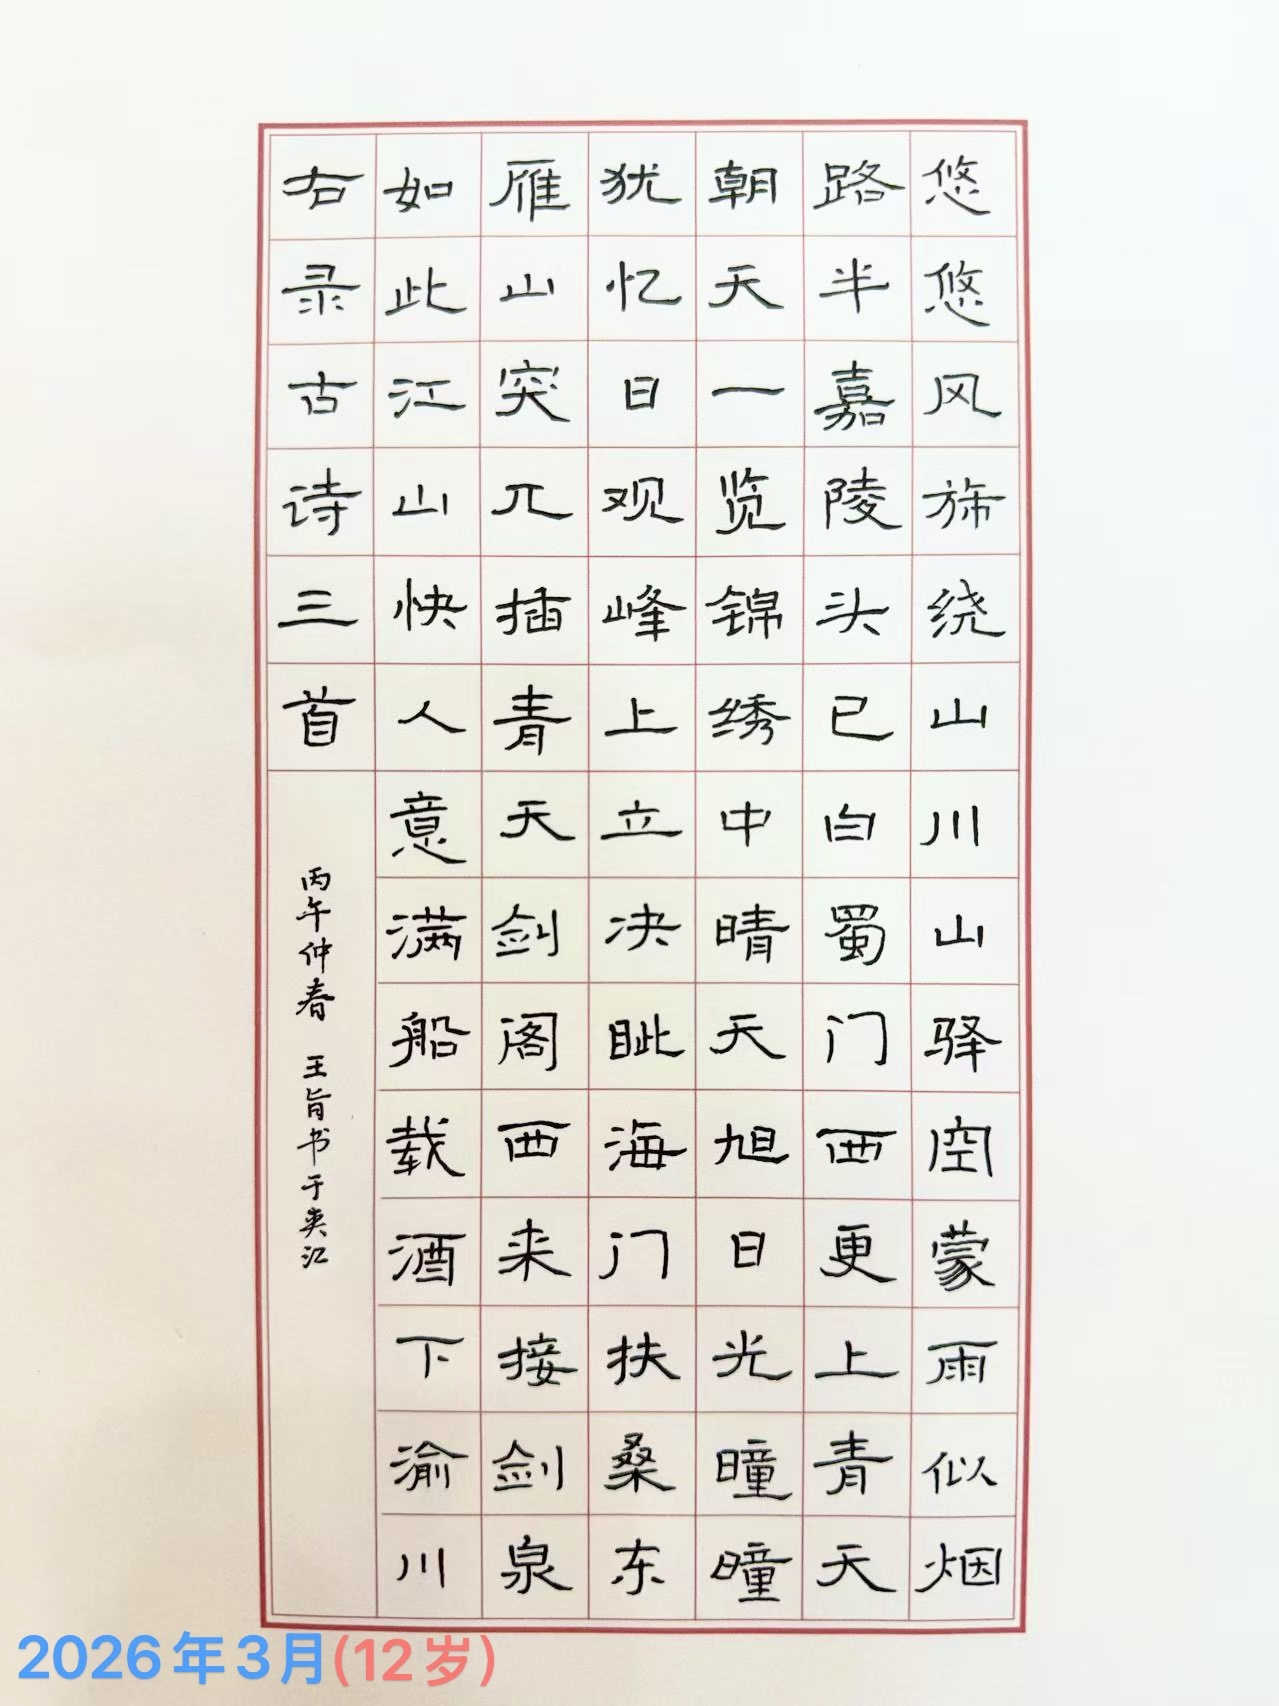 悠悠风旆绕山川山驿空蒙雨似烟
路半嘉陵头已白蜀门西更上青天
朝天一览锦绣中晴天旭日光曈曈
犹忆日观峰上立决眦海门扶桑东
雁山突兀插青天剑阁西来接剑泉
如此江山快人意满船载酒下渝川
右录古诗三首
丙午仲春 王旨书于夹江
2026年3月(12岁)